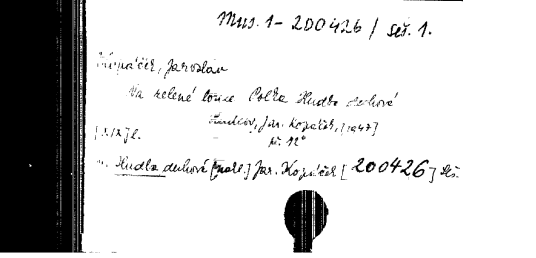 Mus. 1 - 200426 / seš. 1.
Kopáček, Jaroslav
Na zelené louce Polka Hudba dechová
Jar. Kopáček, [1947]
12°
Hudba dechová Jar. Kopáček [200426] seš.